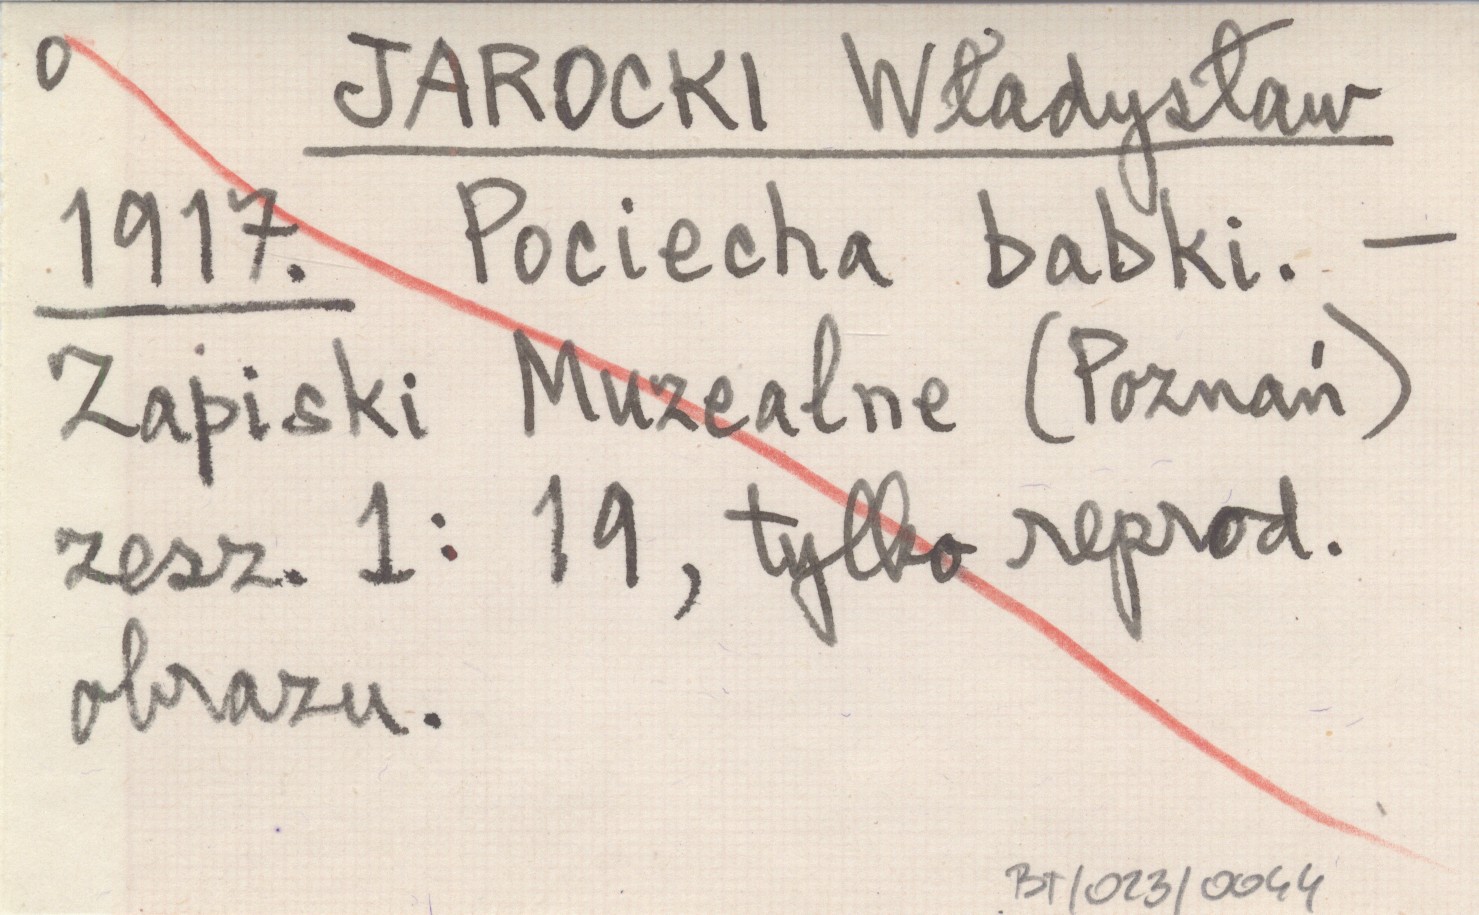 o JAROCKI Władysław
1917. Pociecha babki. —
Zapiski Muzealne (Poznań)
zesz. 1: 19, tylko reprod.
obrazu.
BT/023/0044